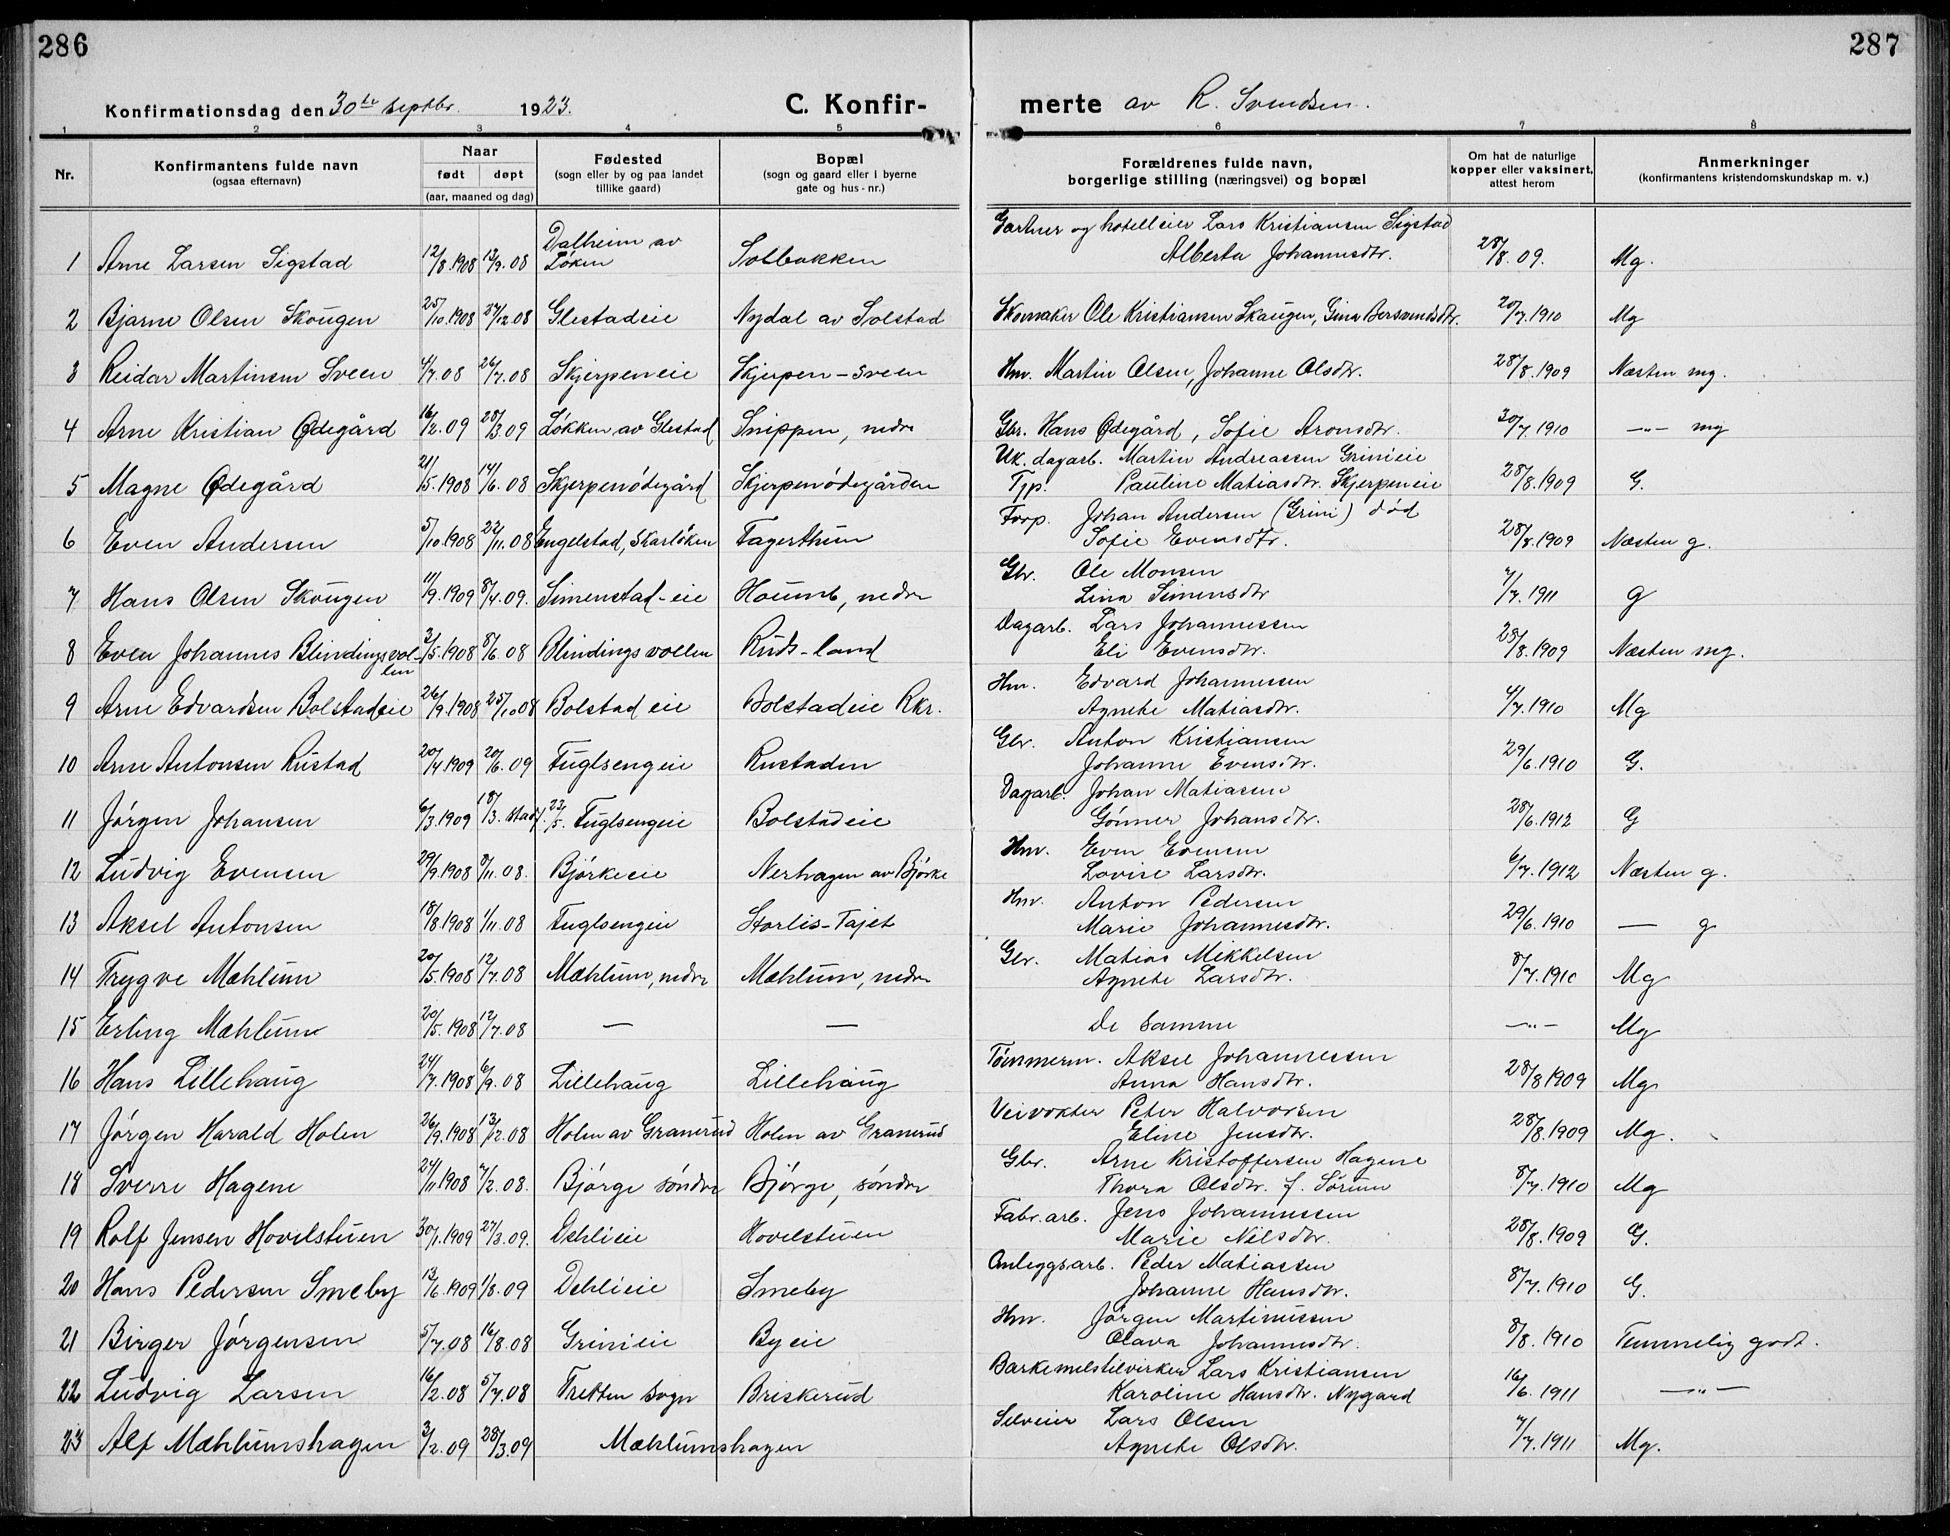 286
287
Konfirmationsdag den 30te septbr. 1923. C. Konfir-
merte av R. Svendsen.
1 2 3 4 5 6 7 8
Nr. Konfirmantens fulde navn (ogsaa efternavn) Naar født døpt (aar, maaned og dag) Fødested (sogn eller by og paa landet tillike gaard) Bopæl (sogn og gaard eller i byerne gate og hus-nr.) Forældrenes fulde navn, borgerlige stilling (næringsvei) og bopæl Om hat de naturlige kopper eller vaksinert, attest herom Anmerkninger (konfirmantens kristendomskundskap m. v.)
1 Arne Larsen Sigstad 12/8.1908 13/9.08 Dalheim av Løken Solbakken Gartner og hotelleier Lars Kristiansen Sigstad Alberta Johannesdtr. 28/8.09. Mg.
2 Bjarne Olsen Skougen 25/10.1908 27/12.08 Glestadeie Nydal av Solstad Skomaker Ole Kristiansen Skaugen, Gina Bersvendsdtr. 20/7.1910 Mg
3 Reidar Martinsen Sveen 4/7.08 26/7.08 Skjerpeneie Skjerpen-sveen Hm. Martin Olsen, Johanne Olsdtr. 28/8.1909 Næsten mg.
4 Arne Kristian Ødegård 16/2.09 28/3.09 Løkken av Glestad Snippen, nedre Gbr. Hans Ødegård, Sofie Aronsdtr. 30/7.1910 -"- mg
5 Magne Ødegård 21/5.1908 14/6.08 Skjerpenødegård Skjerpenødegården Uk. dagarb. Martin Andreassen Grinieie Tjp. Pauline Matiasdtr. Skjerpeneie 28/8.1909 G.
6 Even Andersen 5/10.1908 22/11.08 Engelstad, Skarløken Fagerthun Forp. Johan Andersen (Grini) død Sofie Evensdtr. 28/8.1909 Næsten g.
7 Hans Olsen Skougen 11/9.1909 8/4.09. Simenstad-eie Houmb, nedre Gbr. Ole Monsen Lina Simensdtr 7/7.1911 g
8 Even Johannes Blindingsvol-len 3/5.1908 8/6.08 Blindingsvollen Ruds-land Dagarb. Lars Johannessen Eli Evensdtr. 28/8.1909 Næsten mg.
9 Arne Edvardsen Bolstadeie 26/9.1908 25/10.08 Bolstad eie Bolstadeie Rkr. Hm. Edvard Johannessen Agnete Matiasdtr. 4/7.1910 Mg
10 Arne Antonsen Rustad 20/4.1909 20/6.09 Fuglsengeie Rustaden Gbr. Anton Kristiansen Johanne Evensdtr. 29/6.1910 G.
11 Jørgen Johansen 6/3.1909 18/3. stadf. 23/5. Fuglsengeie Bolstadeie Dagarb. Johan Matiassen Gønner Johansdtr. 28/6.1912 G
12 Ludvig Evensen 29/9.1908 8/11.08. Bjørkeeie Nerhagen av Bjørke Hm. Even Evensen Lovise Larsdtr. 6/7.1912 Næsten g.
13 Aksel Antonsen 18/8.1908 1/11.08 Fuglsengeie Storlis-Tajet Hm. Anton Pedersen Marie Johannesdtr. 29/6.1910 — g
14 Trygve Mæhlum 20/5.1908 12/7.08 Mæhlum, nedre Mæhlum, nedre Gbr. Matias Mikkelsen Agnete Larsdtr. 8/7.1910 Mg
15 Erling Mæhlum 20/5.1908 12/7.08 — — De samme -"- Mg
16 Hans Lillehaug 24/7.1908 6/9.08 Lillehaug Lillehaug Tømmerm. Aksel Johannessen Anna Hansdtr. 28/8 1909 Mg
17 Jørgen Harald Holen 26/9.1908 13/12.08 Holen av Granerud Holen av Granerud Veivokter Peter Halvorsen Eline Jensdtr. 28/8.1909 Mg.
18 Sverre Hagene 24/11.1908 7/2.08. Bjørge søndre Bjørge, søndre Gbr. Arne Kristoffersen Hagene Thora Olsdtr. f. Sørum 8/7.1910 Mg
19 Rolf Jensen Hovelstuen 30/1.1909 27/3.09. Dehlieie Hovelstuen Fabr.arb. Jens Johannessen Marie Nilsdtr. 28/8.1909 G.
20 Hans Pedersen Smeby 13/6.1909 1/8.09 Dehlieie Smeby Anleggsarb. Peder Matiassen Johanne Hansdtr. 8/7.1910 G.
21 Birger Jørgensen 5/7.08 16/8.08 Grinieie Byeie Hm. Jørgen Martinussen Olava Johannesdtr. 8/8.1910 Temmelig godt.
22 Ludvig Larsen 16/2.08 5/7.08 Tretten sogn Briskerud Barkemelstilvirker Lars Kristiansen Karoline Hansdtr. Nygard 16/6.1911 —"—
23 Alf Mæhlumshagen 3/2.09 28/3.09 Mæhlumshagen Selveier Lars Olsen Agnete Olsdtr. 7/7.1911 Mg.